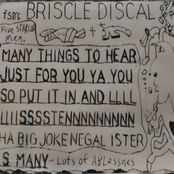 BRISCLE DISCAL
Five STARLE
Men.
MANY THINGS TO HEAR
JUST FOR YOU YA, YOU
SO PUT IT IN AND LLLL
LIIISSSSTENNNNNNNNN
HA BIG JOKENEGAL ISTER
& MANY - Lots of ABLessnes